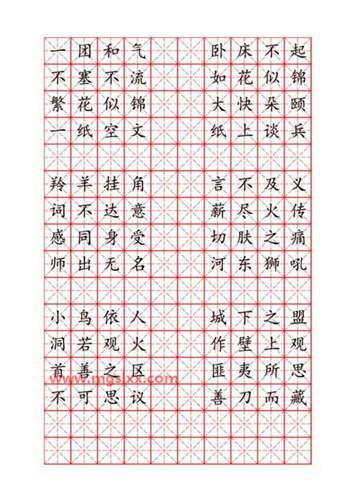 一团和气 卧床不起
不塞不流 如花似锦
繁花似锦 大快朵颐
一纸空文 纸上谈兵
羚羊挂角 言不及义
词不达意 薪尽火传
感同身受 切肤之痛
师出无名 河东狮吼
小鸟依人 城下之盟
洞若观火 作壁上观
首善之区 匪夷所思
www.mgsixx.com
不可思议 善刀而藏